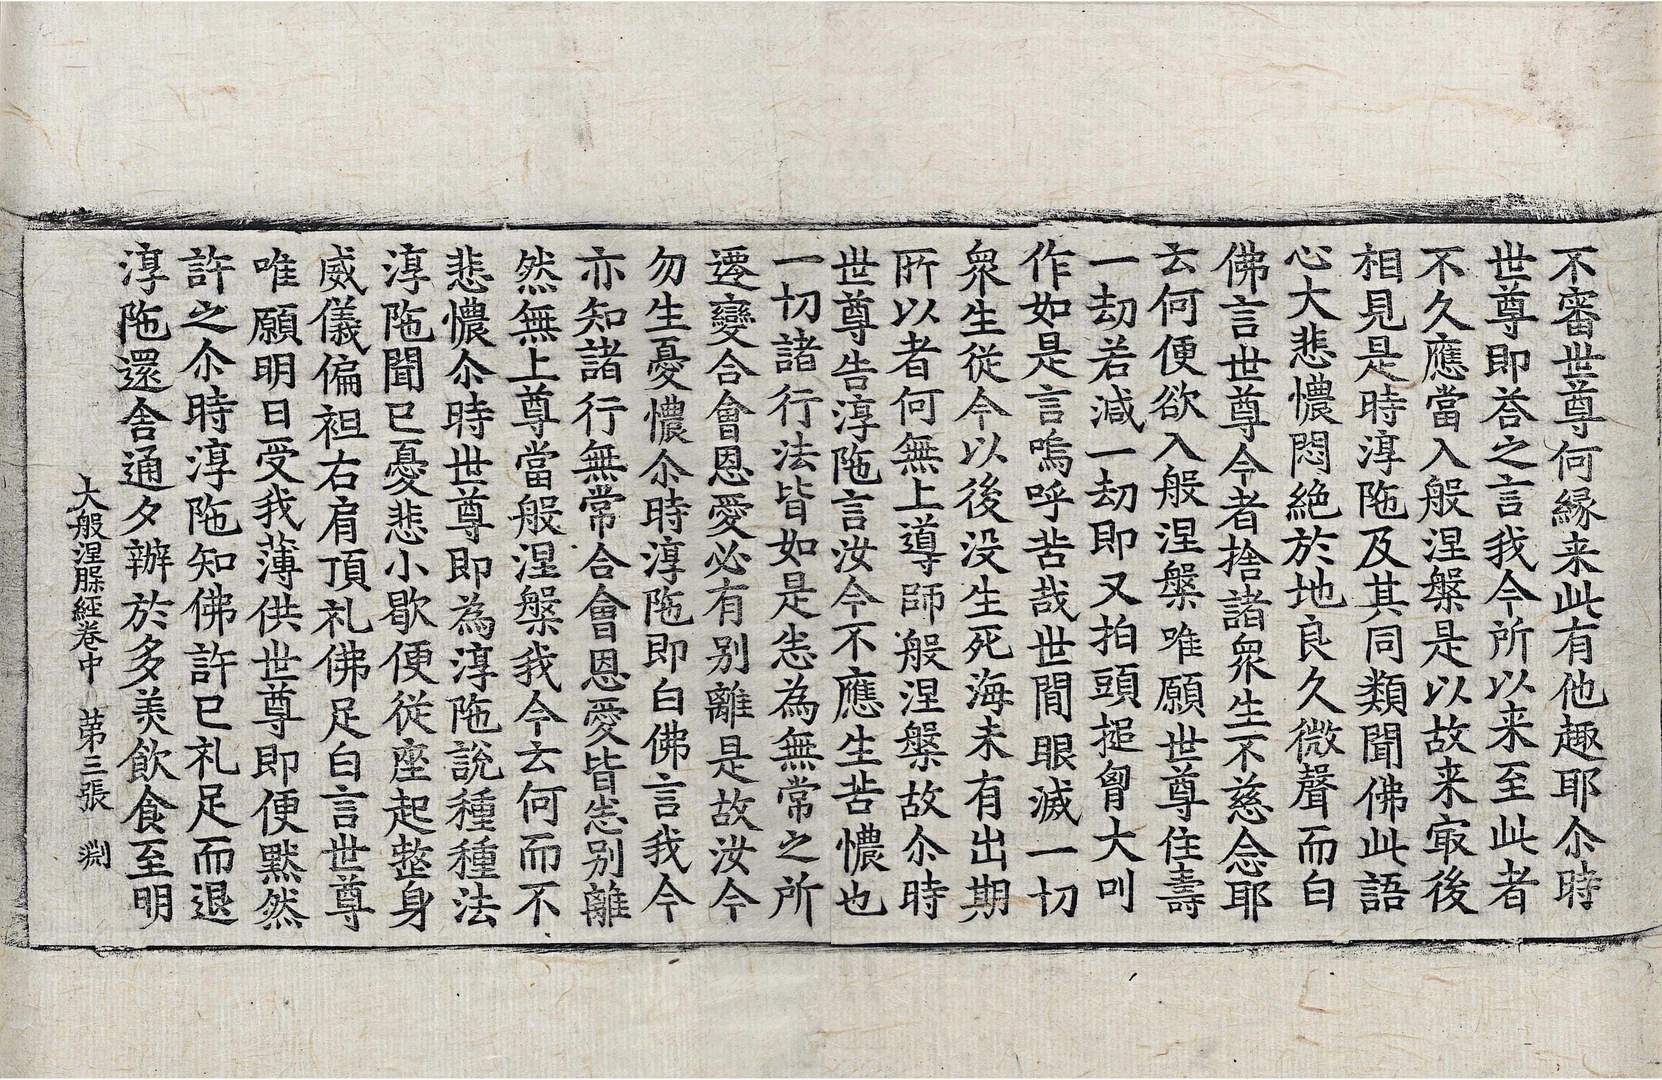 不審世尊何縁来此有他趣耶尒時
世尊即荅之言我今所以来至此者
不久應當入般涅槃是以故来㝡後
相見是時淳陁及其同類聞佛此語
心大悲懷悶絶於地良久微聲而白
佛言世尊今者捨諸衆生不慈念耶
云何便欲入般涅槃唯願世尊住壽
一劫若減一劫即又拍頭搥胷大叫
作如是言嗚呼苦哉世間眼滅一切
衆生從今以後没生死海未有出期
所以者何無上導師般涅槃故尒時
世尊告淳陁言汝今不應生苦懷也
一切諸行法皆如是恙為無常之所
遷變合會恩愛必有别離是故汝今
勿生憂懷尒時淳陁即白佛言我今
亦知諸行無常合會恩愛皆恙别離
然無上尊當般涅槃我今云何而不
悲懷尒時世尊即為淳陁說種種法
淳陁聞已憂悲小歇便從座起整身
威儀偏袒右肩頂礼佛足白言世尊
唯願明日受我薄供世尊即便黙然
許之尒時淳陁知佛許已礼足而退
淳陁還舎通夕辦於多美飲食至明
大般涅槃經卷中 苐三張 淵